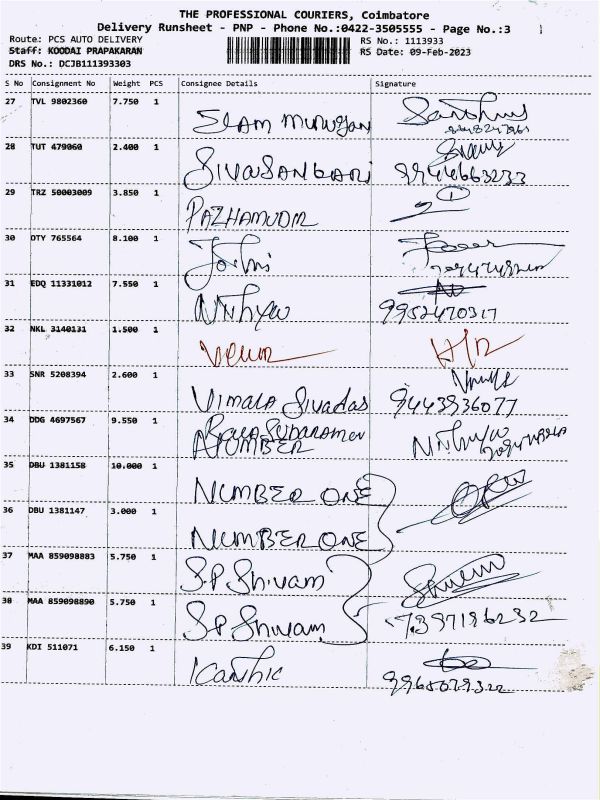 THE PROFESSIONAL COURIERS, Coimbatore
Delivery Runsheet - PNP - Phone No.:0422-3505555 - Page No.:3
Route: PCS AUTO DELIVERY RS No.: 1113933
Staff: KOODAI PRAPAKARAN RS Date: 09-Feb-2023
DRS No.: DCJB111393303
S No Consignment No Weight PCS Consignee Details Signature
27 TVL 9802360 7.750 1
28 TUT 479060 2.400 1 SIVASANKARI 9944663233
29 TRZ 50003009 3.850 1 PAZHAMUDIR
30 DTY 765564 8.100 1
31 EDQ 11331012 7.550 1 Nithya 9952470317
32 NKL 3140131 1.500 1 H/R
33 SNR 5208394 2.600 1 Vimala Sivadas 9443936077
34 DDG 4697567 9.550 1 Nithya
NUMBER
35 DBU 1381158 10.000 1 NUMBER ONE
36 DBU 1381147 3.000 1 NUMBER ONE
37 MAA 859098883 5.750 1 S.P Shivam
38 MAA 859098890 5.750 1 S.P Shivam 7397186232
39 KDI 511071 6.150 1 Karthic
9965079322